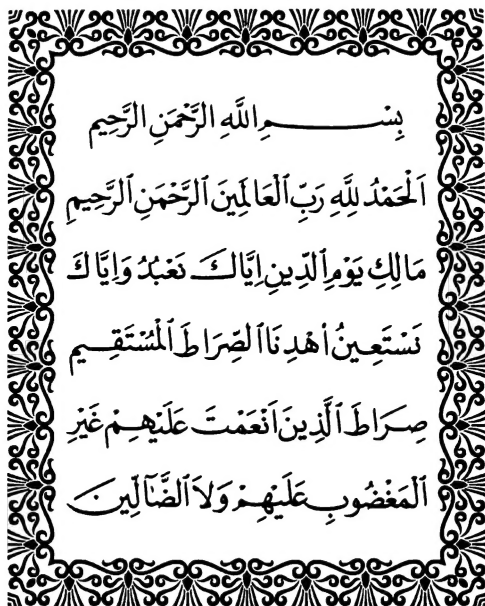 بِسْـــــمِ اللَّهِ الرَّحْمَنِ الرَّحِيم
اَلْحَمْدُ لِلَّهِ رَبِّ ٱلْعَالَمِينَ ٱلرَّحْمَنِ ٱلرَّحِيمِ
مَالِكِ يَوْمِ ٱلدِّينِ اِيَّاكَ نَعْبُدُ وَاِيَّاكَ
نَسْتَعِينُ اُهْدِنَا ٱلصِّرَاطَ ٱلْمُسْتَقِـيم
صِـرَاطَ ٱلَّذِينَ اَنْعَمْتَ عَلَيْهِـمْ غَيْرِ
ٱلْمَغْضُوبِ عَلَيْهِـمْ وَلاَ ٱلضَّآلِّينَ